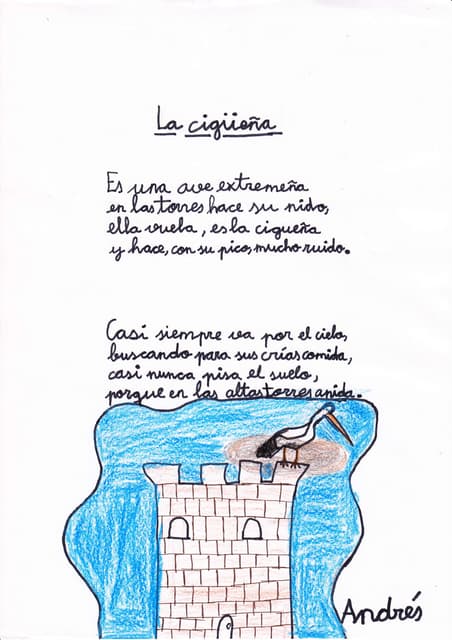 La cigüeña
Es una ave extremeña
en las torres hace su nido,
ella vuela, es la cigueña
y hace, con su pico, mucho ruido.
Casi siempre va por el cielo,
buscando para sus crías comida,
casi nunca pisa el suelo,
porque en las altas torres anida.
Andrés